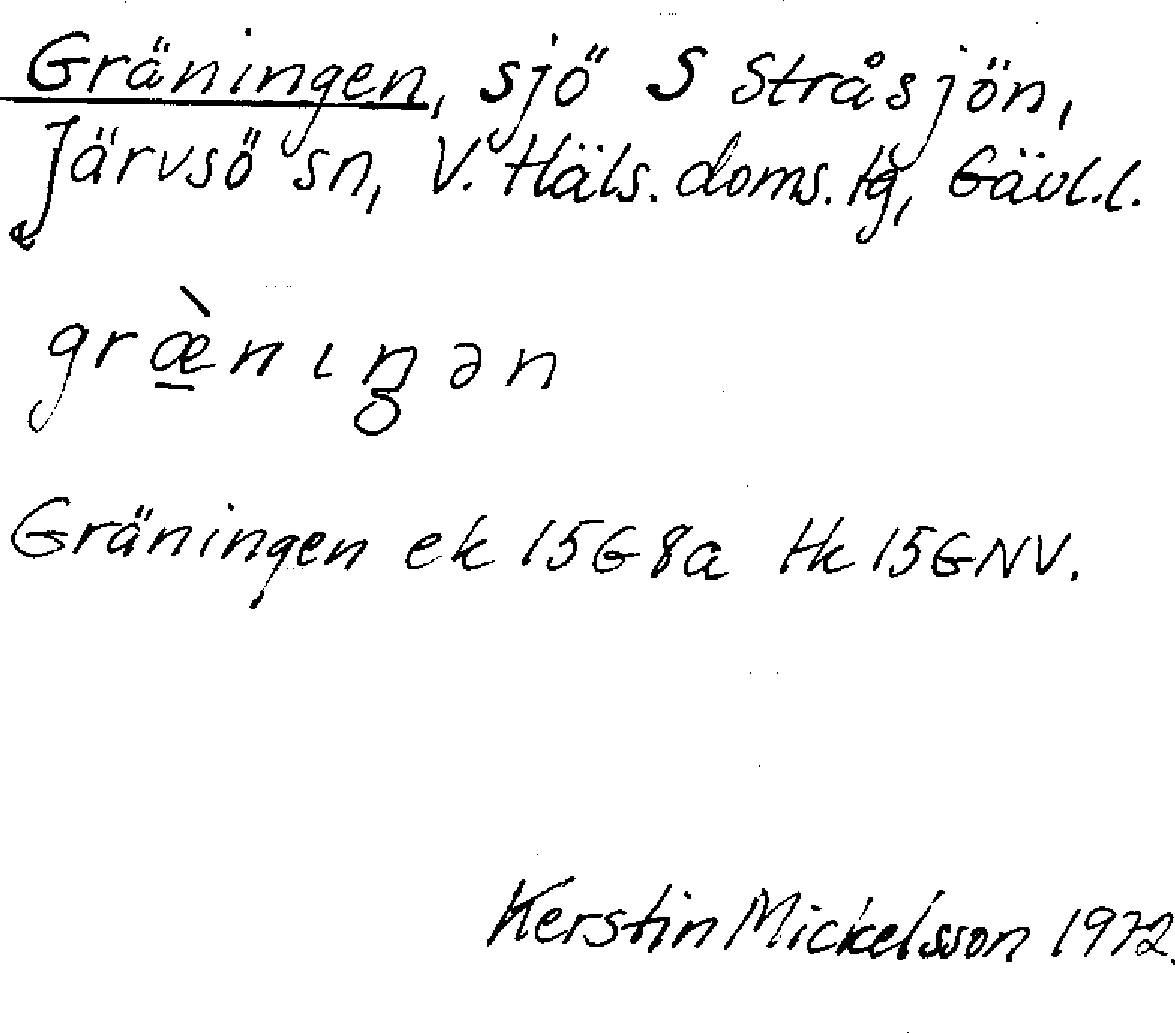 Gräningen, sjö S Stråsjön,
Järvsö sn, V. Häls. doms. tg, Gävl.l.
græ̱̀nıŋən
Gräningen ek 15G8a Hk 15GNV.
Kerstin Mickelsson 1972.